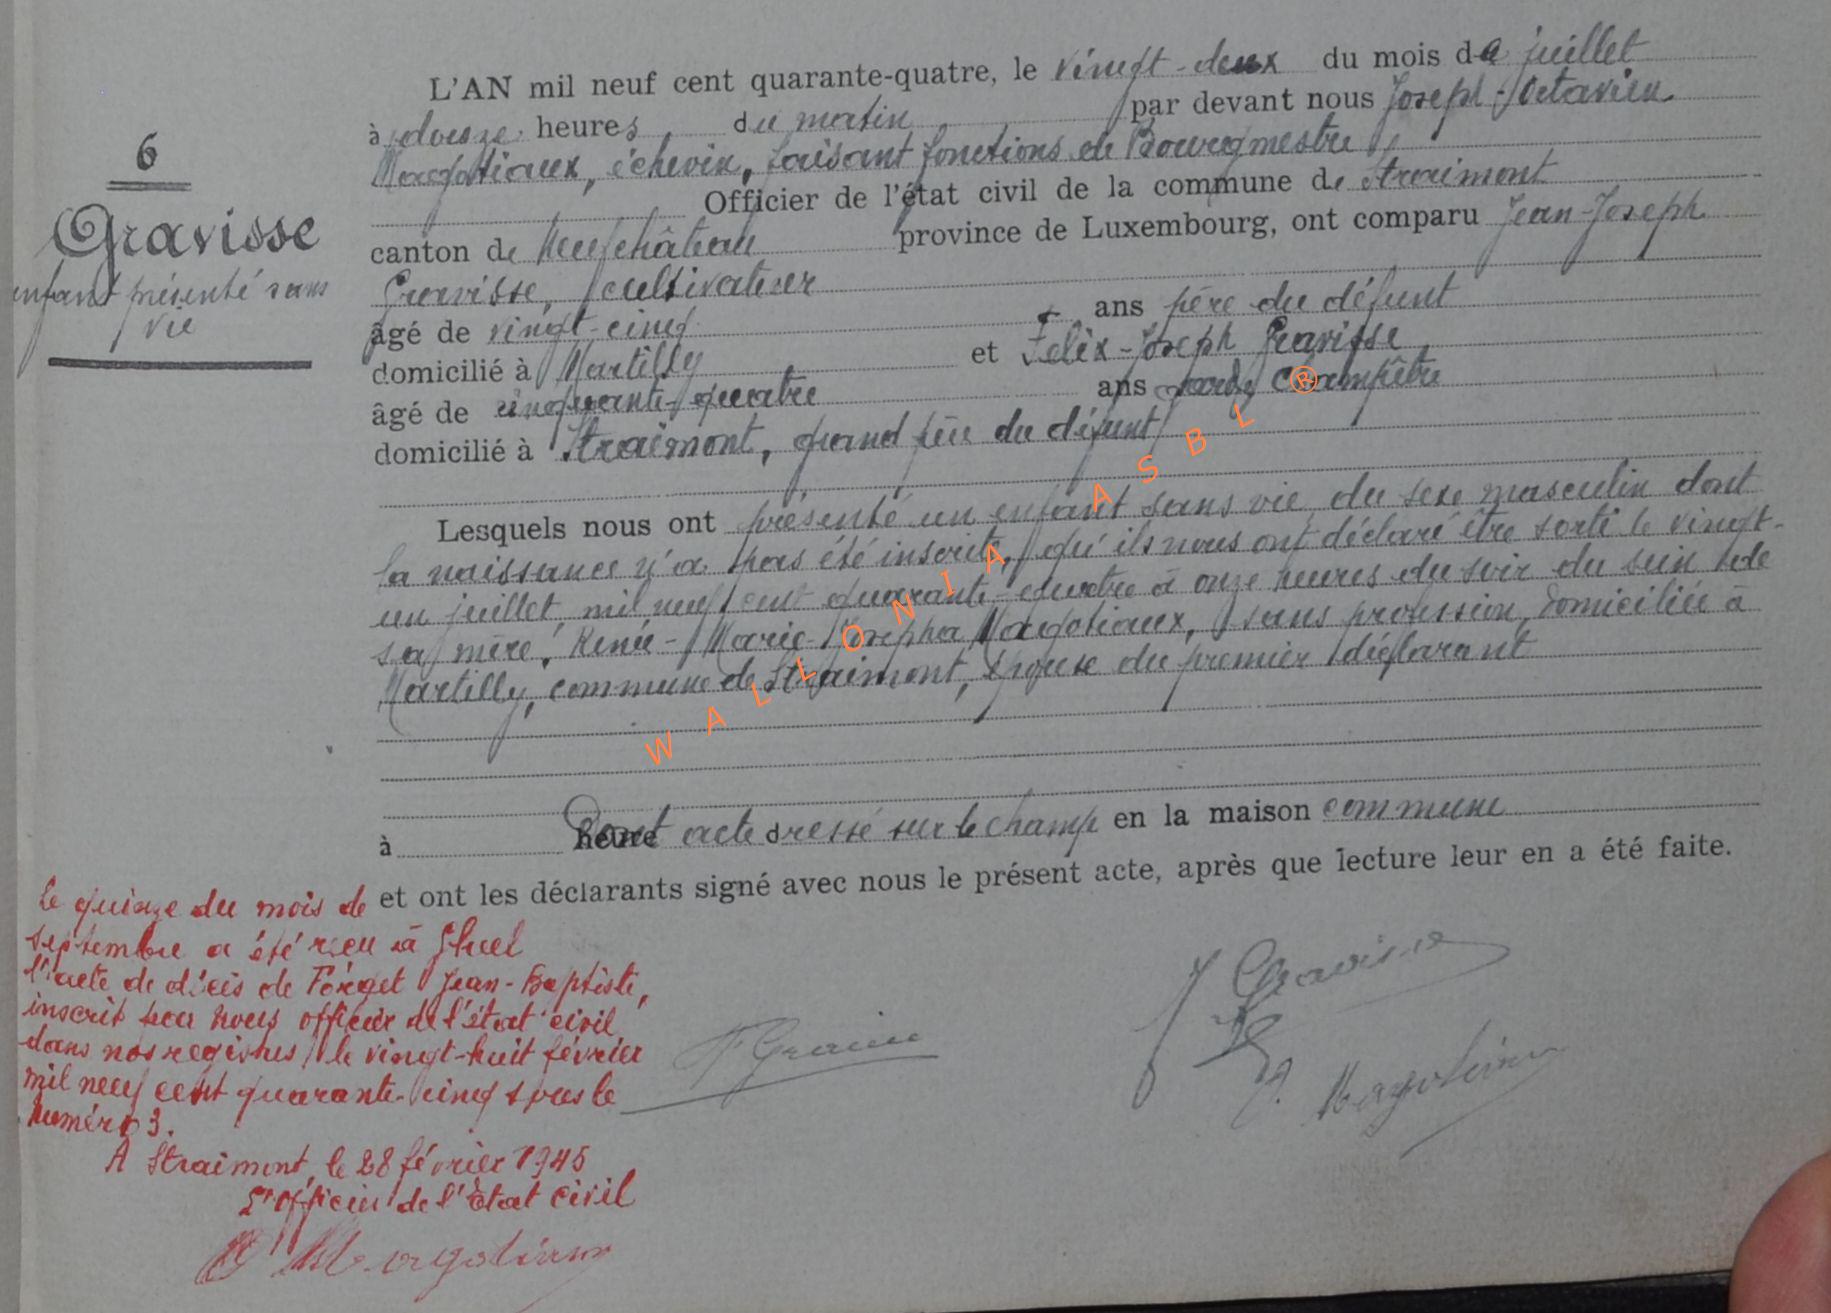 6
Gravisse
enfant présenté sans
vie
L'AN mil neuf cent quarante-quatre, le vingt-deux du mois de juillet
à douze heures du matin par devant nous Joseph-Octavien
Magotiaux, échevin, faisant fonctions de Bourgmestre
Officier de l'état civil de la commune de Straimont
canton de Neufchâteau province de Luxembourg, ont comparu Jean-Joseph
Gravisse, cultivateur
âgé de vingt-cinq ans père du défunt
domicilié à Martilly et Felix-Joseph Gravisse
âgé de cinquante-quatre ans garde champêtre
domicilié à Straimont, grand père du défunt
Lesquels nous ont présenté un enfant sans vie du sexe masculin dont
la naissance n'a pas été inscrite, qu'ils nous ont déclaré être sorti le vingt-
un juillet mil neuf cent quarante-quatre à onze heures du soir du sein de
sa mère, Renée-Marie-Josepha Magotiaux, sans profession, domiciliée à
Martilly, commune de Straimont, épouse du premier déclarant
à heure Dont acte dressé sur le champ en la maison commune
et ont les déclarants signé avec nous le présent acte, après que lecture leur en a été faite.
Le quinze du mois de
septembre a été reçu à Gheel
l'acte de décès de Forget Jean-Baptiste,
inscrit par nous officier de l'état civil
dans nos registres le vingt-huit février
mil neuf cent quarante-cinq sous le
numéro 3.
A Straimont, le 28 février 1945
L'officier de l'Etat civil
O Magotiaux
J Gravisse
F Gravisse
O. Magotiaux
WALLONIA ASBL ®